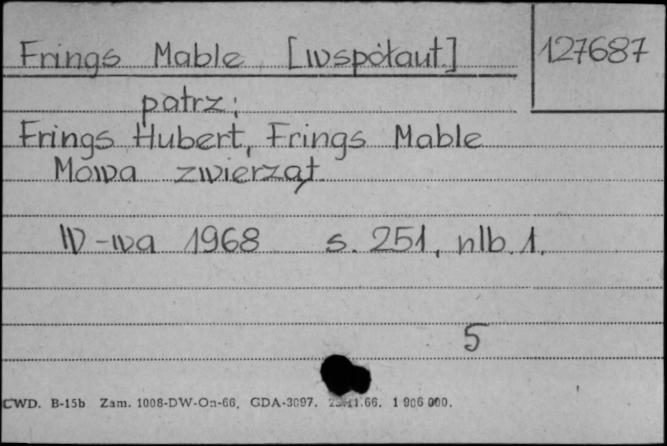 Frings Mable [współaut.] 127687
patrz:
Frings Hubert, Frings Mable
Mowa zwierząt
W-wa 1968 s. 251, nlb. 1.
5
CWD. B-15b Zam. 1008-DW-On-66, GDA-3097. 1 906 000.